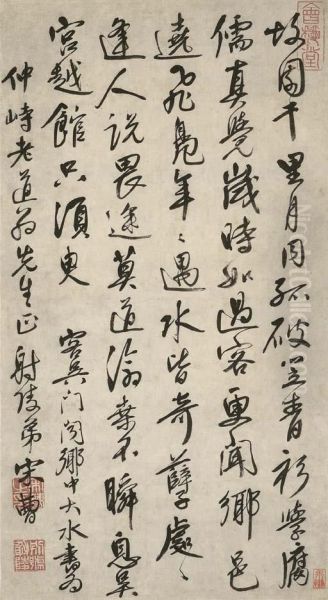 會秋堂
故園千里月同孤破笠青衫學腐
儒真覺歲時如過客更聞鄉邑
遶飛鳧年〻遇水皆奇孽處〻
逢人說畏途莫道滄桑不瞬息吳
宮越館只須臾
客吳門聞鄉中大水書為
仲峙老道翁先生正 射陵弟宋曹